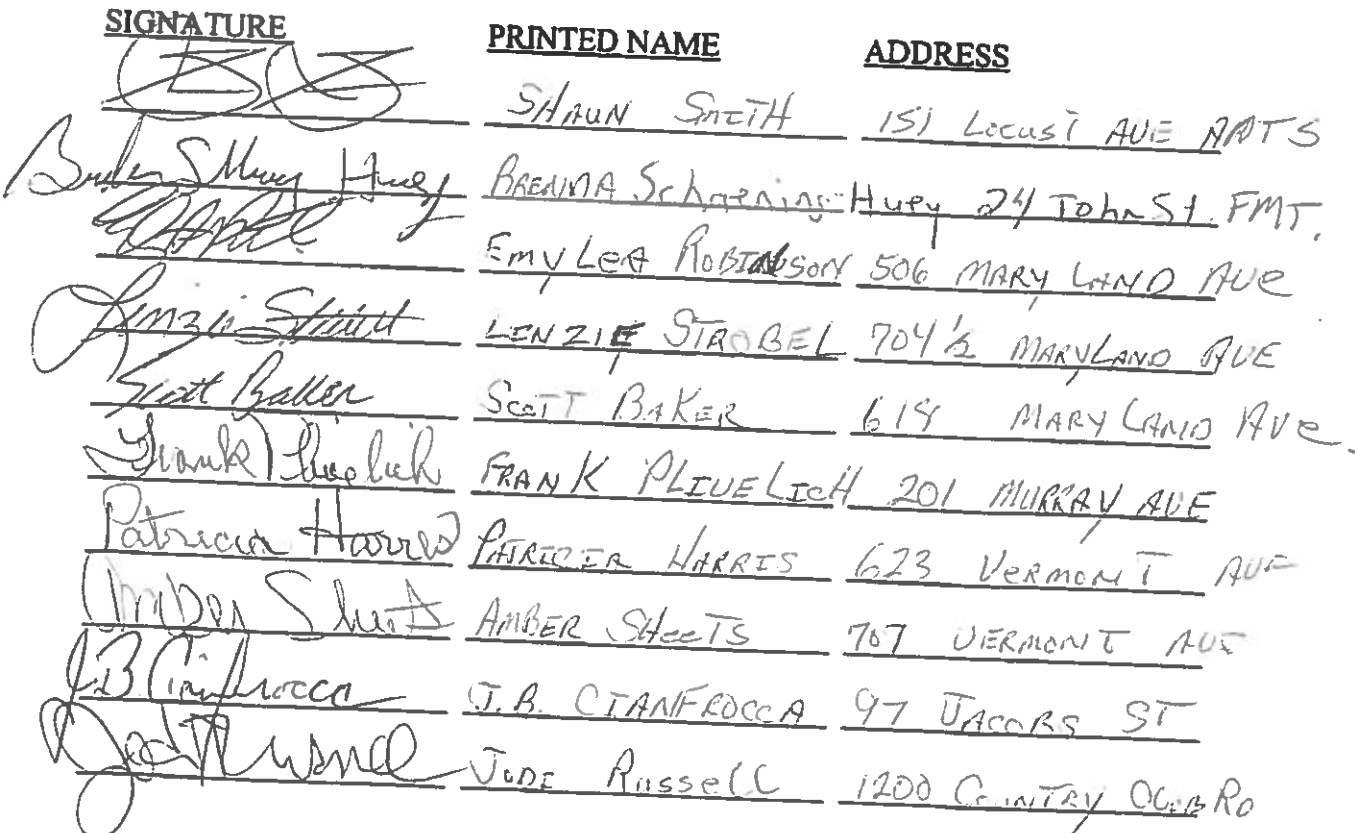 SIGNATURE PRINTED NAME ADDRESS
SHAUN SMITH 151 Locust AVE APTS
Huey BRENDA Schoening-Huey 24 John St. FMT.
EmyLea ROBINSON 506 MARYLAND AVe
Linzie LENZIE STROBEL 704 1/2 MARYLAND AVE
Scott Baker SCOTT BAKER 618 MARYLAND AVe.
Frank Plivelich FRANK PLIVELICH 201 MURRAY AVE
Patricia Harris PATRICIA HARRIS 623 VERMONT AVE
Amber Sheets AMBER SHeeTS 707 VERMONT AVE
J.B. Cianfrocca J.B. CIANFROCCA 97 JACOBS ST
JODE RusseLL 1200 COUNTRY CLUB RD